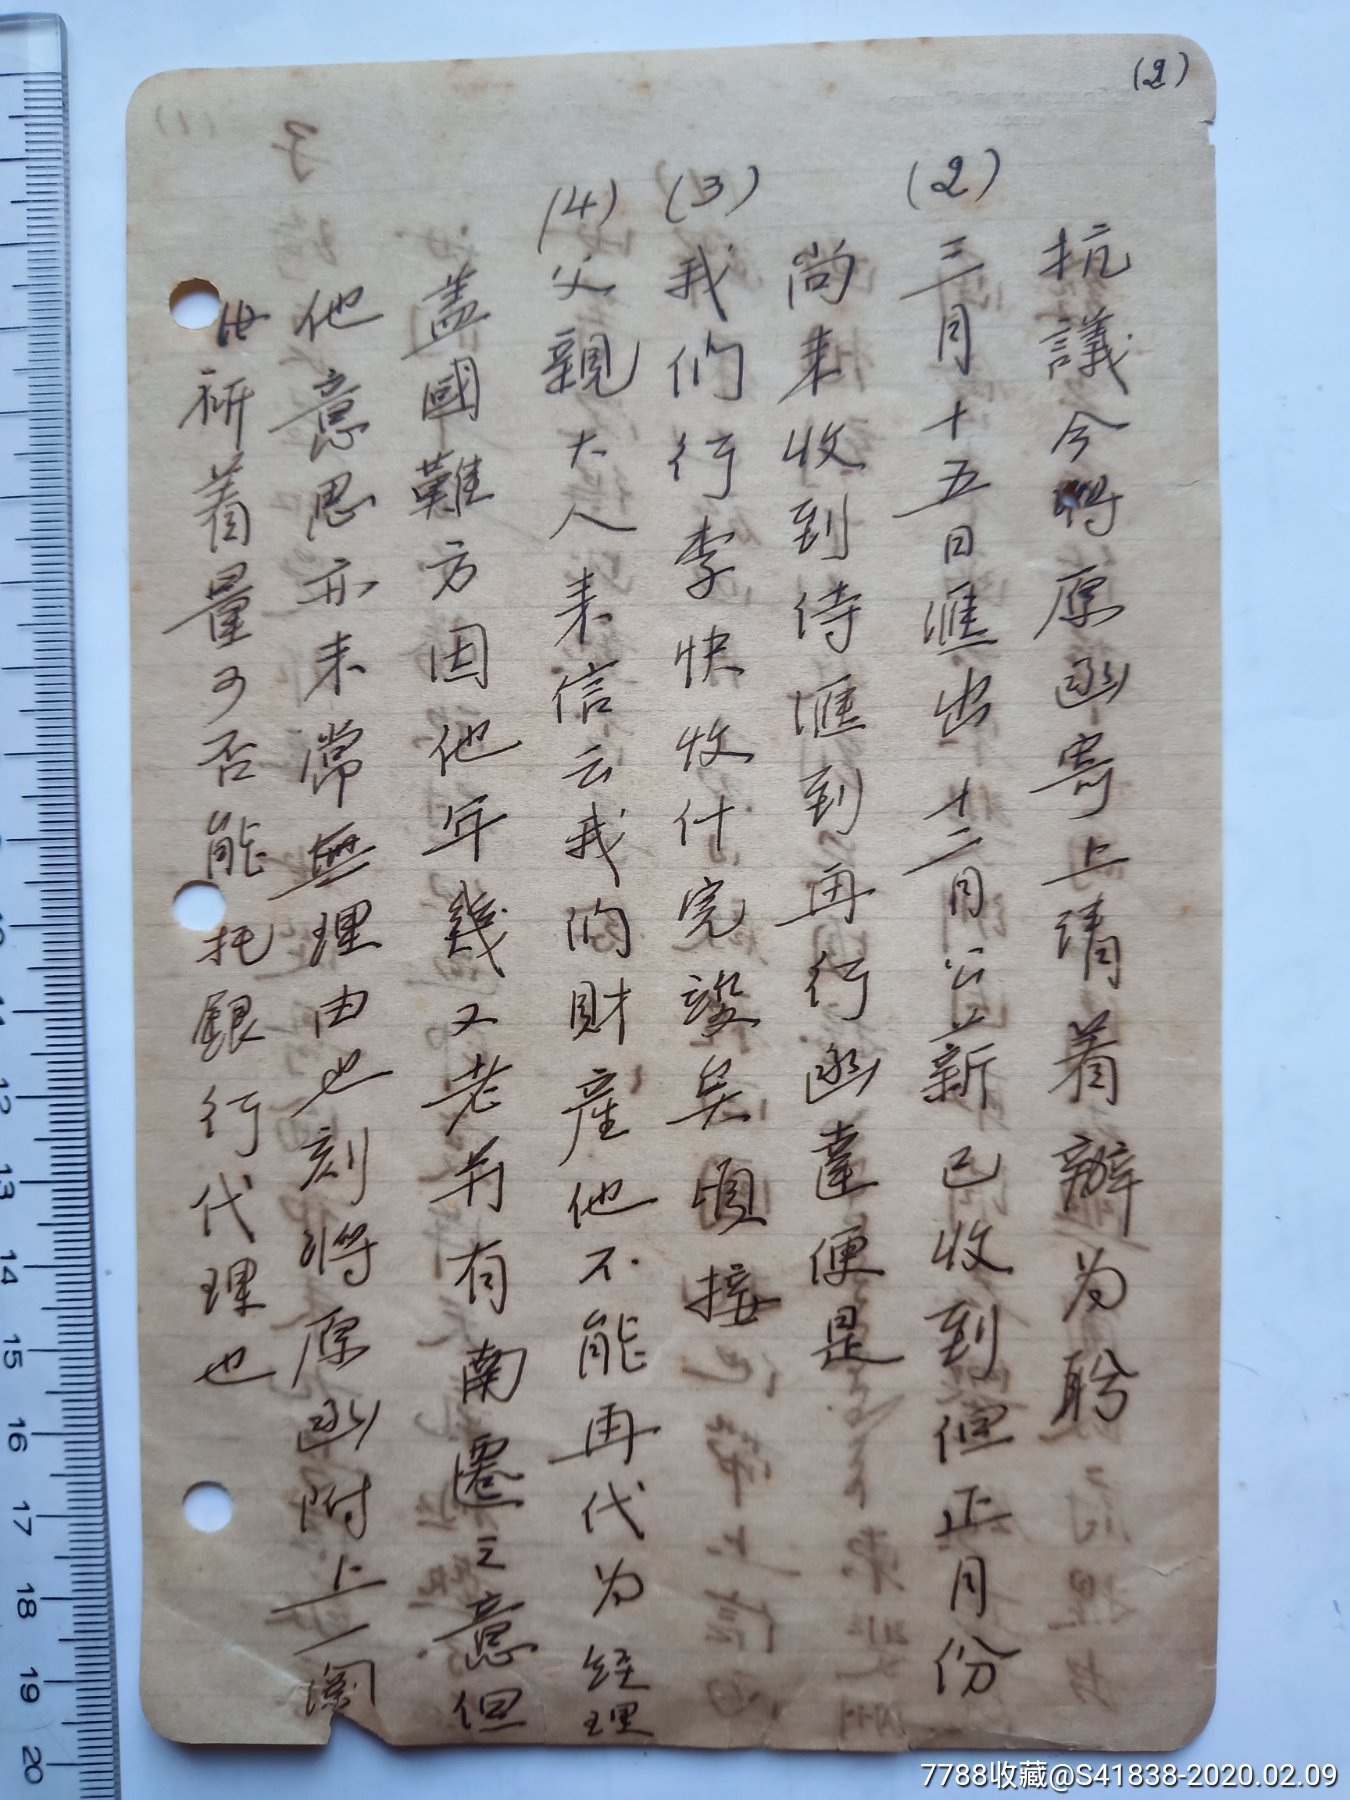 (2)
抗議今將原函寄上請着辦为盼
(2)三月十五日匯出十二月公薪已收到但正月份
尚未收到待匯到再行函達便是
(3)我们行李快收什完
頃接
(4)父親大人来信云我的財產他不能再代为经理
盖國難方因他年幾又老并有南遷之意但
他意思亦未常無理由也刻將原函附上一阅
祈着量可否能托銀行代理也
7788收藏@S41838-2020.02.09